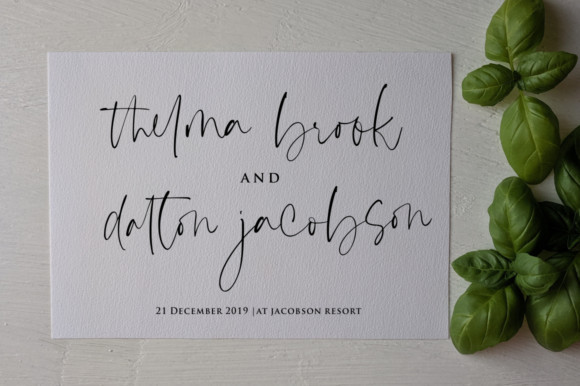 thelma brook
AND
dalton jacobson
21 DECEMBER 2019 |AT JACOBSON RESORT